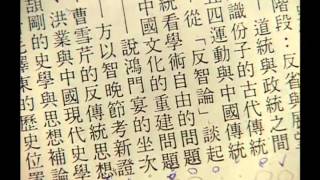 階段：反省與展望
——道統與政統之間
識份子的古代傳統
五四運動與中國傳統
從「反智論」談起
統看學術自由的問題
中國文化的重建問題
——說鴻門宴的坐次
——方以智晚節考新證
曹雪芹的反傳統思想
、洪業與中國現代史學
頡剛的史學與思想補論
毛澤東的歷史位置